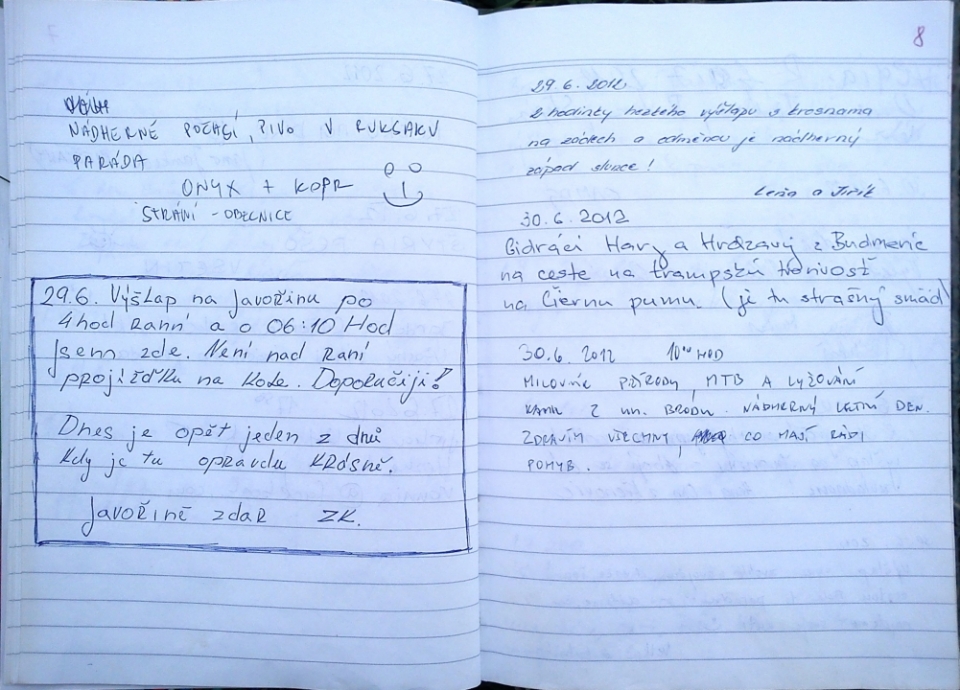 NÁDHERNÉ POČASÍ, PIVO V RUKSAKU
PARÁDA
ONYX + KOPR
STRÁNÍ - OBECNICE
29.6. Výšlap na Javořinu po
4hod ranní a o 06:10 Hod
jsem zde. Není nad raní
projížďku na kole. Doporučiji!
Dnes je opět jeden z dnů
kdy je tu opravdu krásně.
Javořině zdar ZK.
8
29.6. 2012
2 hodinky hezkého výšlapu s krosnama
na zádech a odměnou je nádherný
západ slunce!
Leňa a Jiřík
30.6.2012
Gidráci Hary a Hrdzavý z Budmeríc
na ceste na trampskú tvorivosť
na Čiernu pumu. (je tu strašný smäd)
30.6. 2012 10⁰⁰ HOD
MILOVNÍK PŘÍRODY, MTB A LYŽOVÁNÍ
Z UH. BRODU. NÁDHERNÝ LETNÍ DEN.
ZDRAVÍM VŠECHNY, CO MAJÍ RÁDI
POHYB.